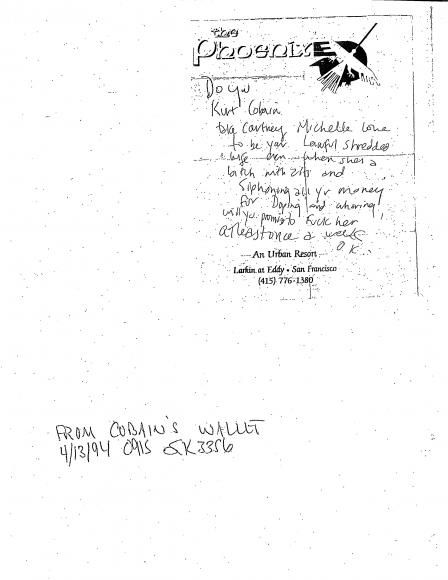 the
Phoenix
Do you
Kurt Cobain
take Courtney Michelle Love
to be your Lawful shredded
wife even when shes a
bitch with zits and
Siphoning all yr money
for Doping and whoring
will you promise to Fuck her
atleast once a week
O.K
An Urban Resort
Larkin at Eddy • San Francisco
(415) 776-1380
FROM COBAIN'S WALLET
4/13/94 0915